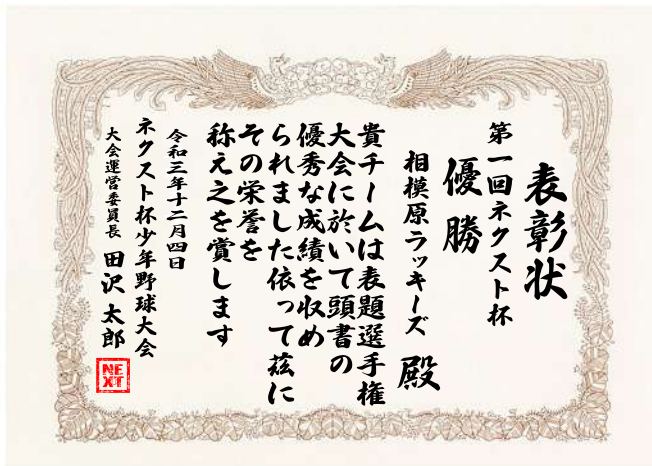 表彰状
第一回ネクスト杯
優勝
相模原ラッキーズ 殿
貴チームは表題選手権
大会に於いて頭書の
優秀な成績を収め
られました依って茲に
その栄誉を
称え之を賞します
令和三年十二月四日
ネクスト杯少年野球大会
大会運営委員長 田沢 太郎
NE
XT